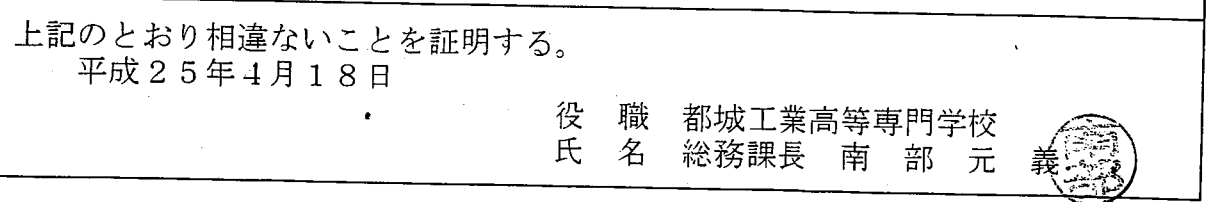 上記のとおり相違ないことを証明する。
平成25年4月18日
役　職　都城工業高等専門学校
氏　名　総務課長　南　部　元　義
南部